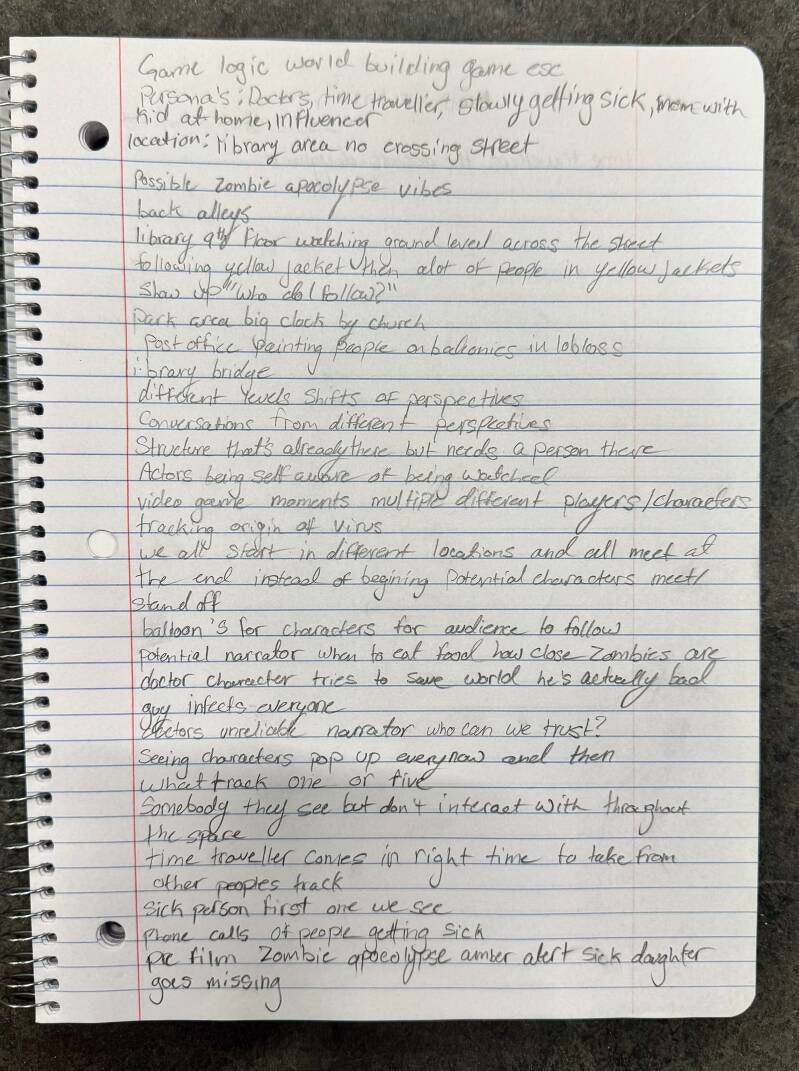 Game logic world building game esc
Persona's: Doctors, time traveller, slowly getting sick, mom with
kid at home, Influencer
location: library area no crossing street
Possible Zombie apocolypse vibes
back alleys
library 9th floor watching ground level across the street
following yellow jacket then alot of people in yellow jackets
show up "who do I follow?"
Park area big clock by church
Post office painting people on balconies in lobloss
library bridge
different levels shifts of perspectives
Conversations from different perspectives
Structure that's already there but needs a person there
Actors being self aware of being watched
video game moments multiple different players/characters
tracking origin of virus
we all start in different locations and all meet at
the end instead of begining Potential characters meet/
stand off
balloon's for characters for audience to follow
potential narrator when to eat food how close Zombies are
doctor character tries to save world he's actually bad
guy infects everyone
doctors unreliable narrator who can we trust?
Seeing characters pop up everynow and then
what track one or five
Somebody they see but don't interact with throughout
the space
time traveller comes in right time to take from
other peoples track
sick person first one we see
phone calls of people getting sick
pre film Zombie apocolypse amber alert sick daughter
goes missing